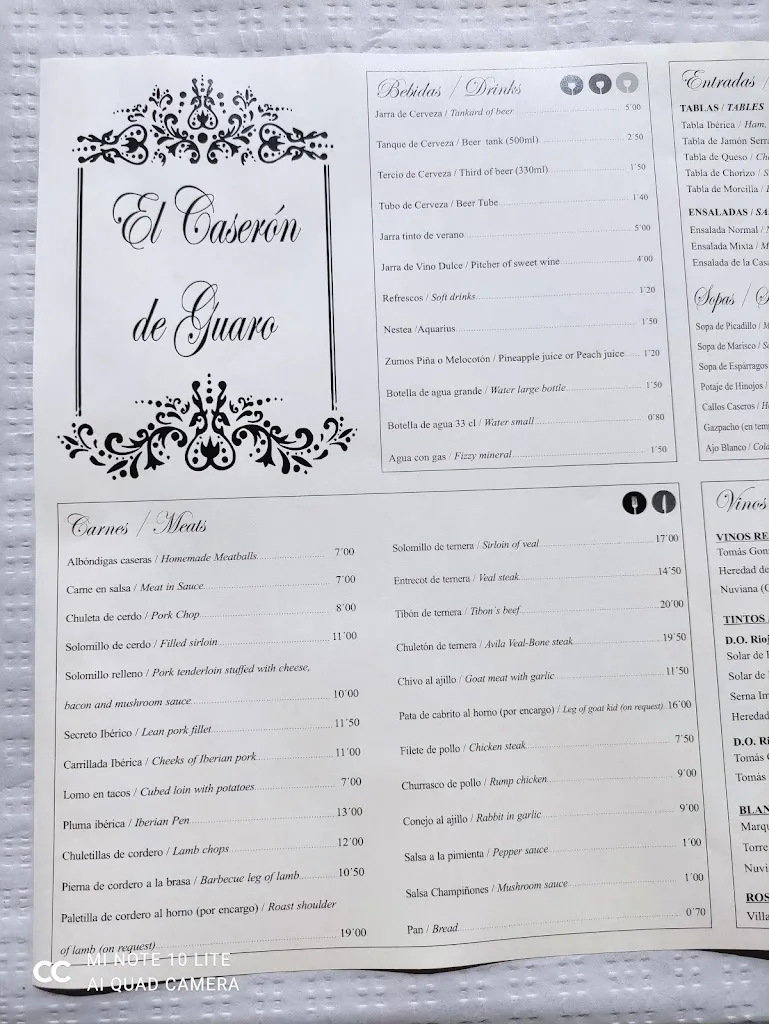 El Caserón
de Guaro
Bebidas / Drinks
Jarra de Cerveza / Tankard of beer 5´00
Tanque de Cerveza / Beer tank (500ml) 2´50
Tercio de Cerveza / Third of beer (330ml) 1´50
Tubo de Cerveza / Beer Tube 1´40
Jarra tinto de verano 5´00
Jarra de Vino Dulce / Pitcher of sweet wine 4´00
Refrescos / Soft drinks 1´20
Nestea /Aquarius 1´50
Zumos Piña o Melocotón / Pineapple juice or Peach juice 1´20
Botella de agua grande / Water large bottle 1´50
Botella de agua 33 cl / Water small 0´80
Agua con gas / Fizzy mineral 1´50
Entradas /
TABLAS / TABLES
Tabla Ibérica / Ham,
Tabla de Jamón Serra
Tabla de Queso / Che
Tabla de Chorizo / S
Tabla de Morcilla /
ENSALADAS / SA
Ensalada Normal /
Ensalada Mixta / M
Ensalada de la Casa
Sopas / S
Sopa de Picadillo / M
Sopa de Marisco / Se
Sopa de Espárragos
Potaje de Hinojos /
Callos Caseros / H
Gazpacho (en tem
Ajo Blanco / Cold
Carnes / Meats
Albóndigas caseras / Homemade Meatballs 7´00
Carne en salsa / Meat in Sauce 7´00
Chuleta de cerdo / Pork Chop 8´00
Solomillo de cerdo / Filled sirloin 11´00
Solomillo relleno / Pork tenderloin stuffed with cheese,
bacon and mushroom sauce 10´00
Secreto Ibérico / Lean pork fillet 11´50
Carrillada Ibérica / Cheeks of Iberian pork 11´00
Lomo en tacos / Cubed loin with potatoes 7´00
Pluma ibérica / Iberian Pen 13´00
Chuletillas de cordero / Lamb chops 12´00
Pierna de cordero a la brasa / Barbecue leg of lamb 10´50
Paletilla de cordero al horno (por encargo) / Roast shoulder
of lamb (on request) 19´00
Solomillo de ternera / Sirloin of veal 17´00
Entrecot de ternera / Veal steak 14´50
Tibón de ternera / Tibon´s beef 20´00
Chuletón de ternera / Avila Veal-Bone steak 19´50
Chivo al ajillo / Goat meat with garlic 11´50
Pata de cabrito al horno (por encargo) / Leg of goat kid (on request) 16´00
Filete de pollo / Chicken steak 7´50
Churrasco de pollo / Rump chicken 9´00
Conejo al ajillo / Rabbit in garlic 9´00
Salsa a la pimienta / Pepper sauce 1´00
Salsa Champiñones / Mushroom sauce 1´00
Pan / Bread 0´70
Vinos
VINOS RE
Tomás Gon
Heredad de
Nuviana (C
TINTOS
D.O. Rioj
Solar de
Solar de
Serna Im
Heredad
D.O. Ri
Tomás
Tomás
BLAN
Marqu
Torre
Nuvi
ROS
Villa
MI NOTE 10 LITE
AI QUAD CAMERA